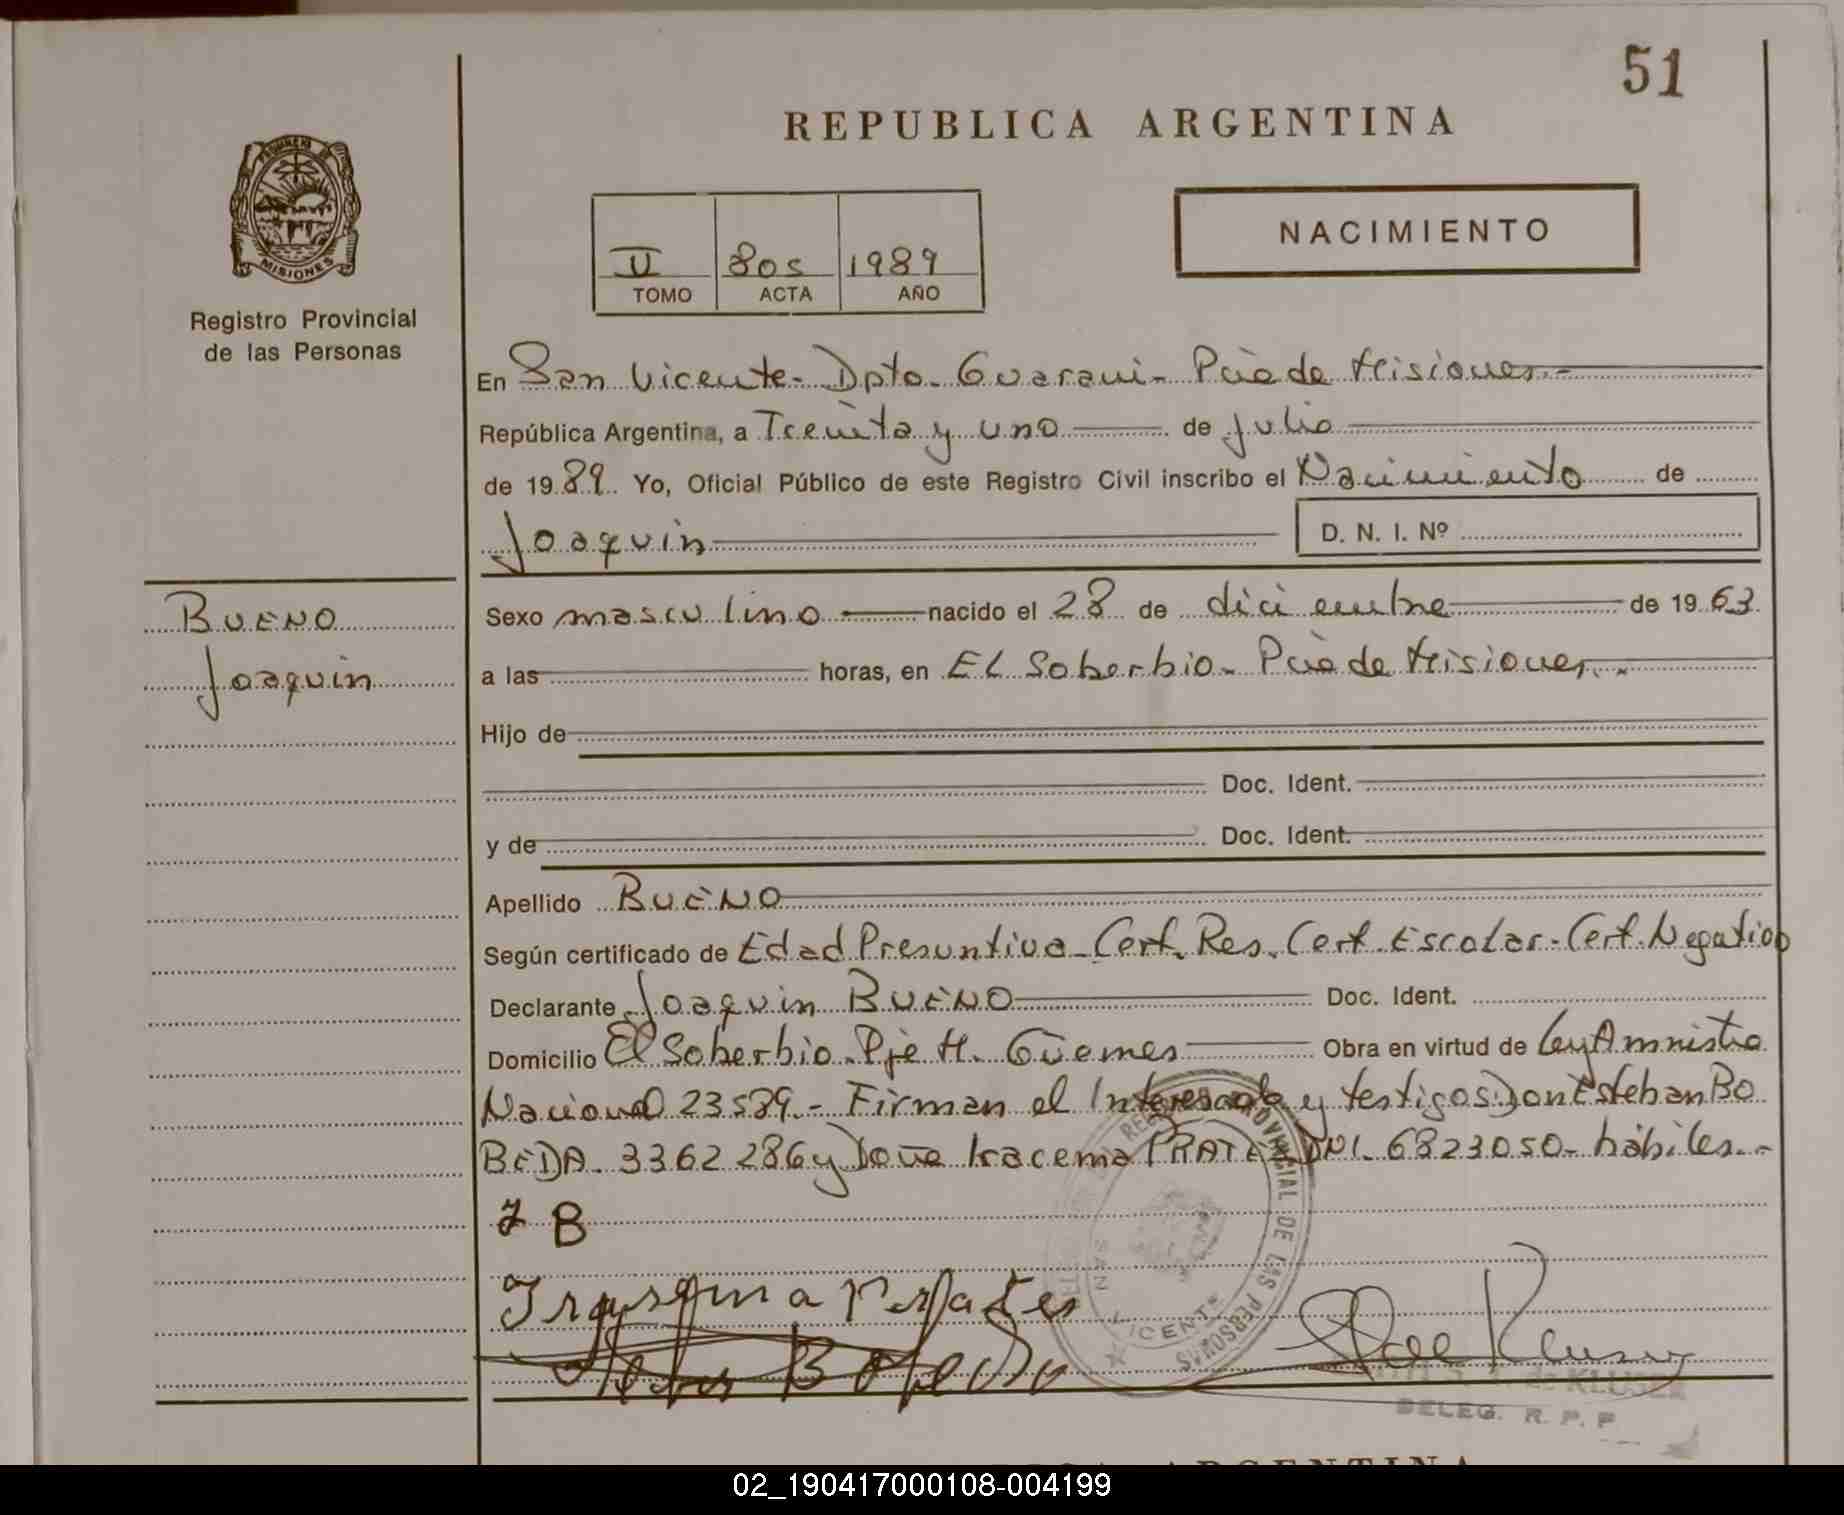 51
REPUBLICA ARGENTINA
PROVINCIA DE
MISIONES
Registro Provincial
de las Personas
II 805 1989
TOMO ACTA AÑO
NACIMIENTO
En San Vicente - Dpto. Guarani - Pcia de Misiones.-
República Argentina, a Treinta y uno de julio
de 1989. Yo, Oficial Público de este Registro Civil inscribo el Nacimiento de
Joaquin
D. N. I. Nº
BUENO
Joaquin
Sexo masculino nacido el 28 de diciembre de 1963
a las horas, en El Soberbio - Pcia de Misiones.-
Hijo de
Doc. Ident.
y de Doc. Ident.
Apellido BUENO
Según certificado de Edad Presuntiva - Cert. Res. Cert. Escolar - Cert. Negativo
Declarante Joaquin BUENO Doc. Ident.
Domicilio El Soberbio. Pje M. Güemes Obra en virtud de Ley Amnistia
Nacional 23589.- Firman el Interesado y testigos Don Esteban BO
BEDA. 3362286 y Doña Iracema PRATES DNI. 6823050 - hábiles.-
J B
REGISTRO PROVINCIAL DE LAS PERSONAS
SAN VICENTE
de KLUSER
DELEG. R. P. P.
ARGENTINA
02_190417000108-004199